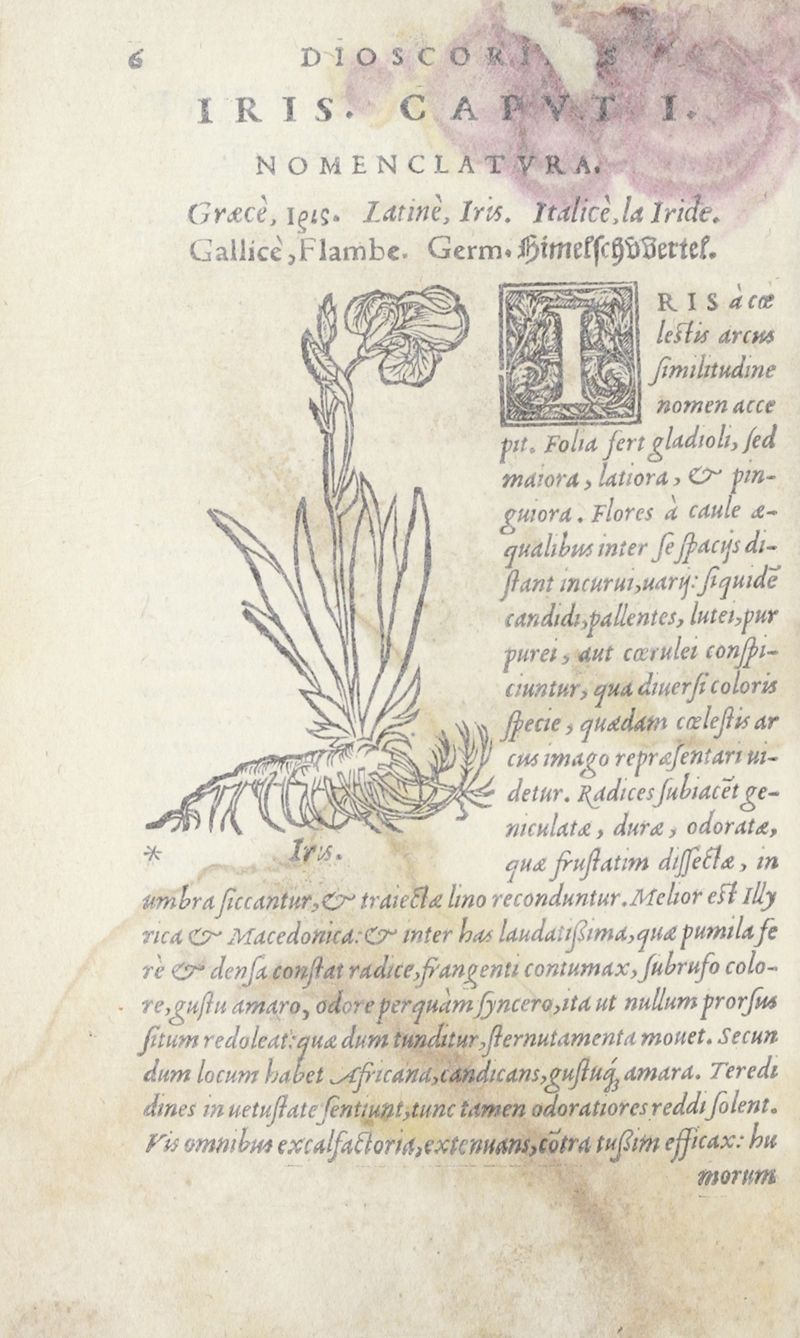 6 DIOSCORI
IRIS. CAPVT I.
NOMENCLATVRA.
Græcè, ιρις. Latinè, Iris. Italicè, la Iride.
Gallicè, Flambe. Germ.
IRIS à cœ
lestis arcus
similitudine
nomen acce
pit. Folia fert gladioli, sed
maiora, latiora, & pin-
guiora. Flores à caule æ-
qualibus inter se spacijs di-
stant incurui, uarij: siquidē
candidi, pallentes, lutei, pur
purei, aut cœrulei conspi-
ciuntur, qua diuersi coloris
specie, quædam cœlestis ar
cus imago repræsentari ui-
detur. Radices subiacēt ge-
niculatæ, duræ, odoratæ,
quæ frustatim dissectæ, in
* Iris.
umbra siccantur, & traiectæ lino reconduntur. Melior est Illy
rica & Macedonica: & inter has laudatißima, quæ pumila fe
rè & densa constat radice, frangenti contumax, subrufo colo-
re, gustu amaro, odore perquàm syncero, ita ut nullum prorsus
situm redoleat: quæ dum tunditur, sternutamenta mouet. Secun
dum locum habet Africana, candicans, gustuq́; amara. Teredi
dines in uetustate sentiunt, tunc tamen odoratiores reddi solent.
Vis omnibus excalfactoria, extenuans, cōtra tußim efficax: hu
morum